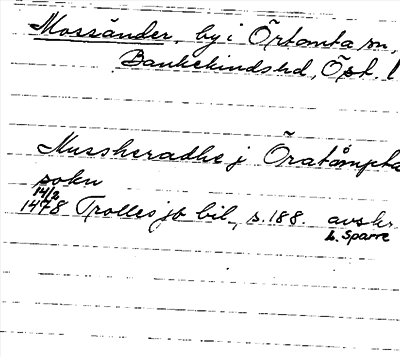 Mossänder, by i Örtomta sn,
Bankekinds hd, Öst. l
Mussheradhe j Öratåmpta
sokn
14/2
1478 Trolles jb bil., s. 188. avskr.
L. Sparre